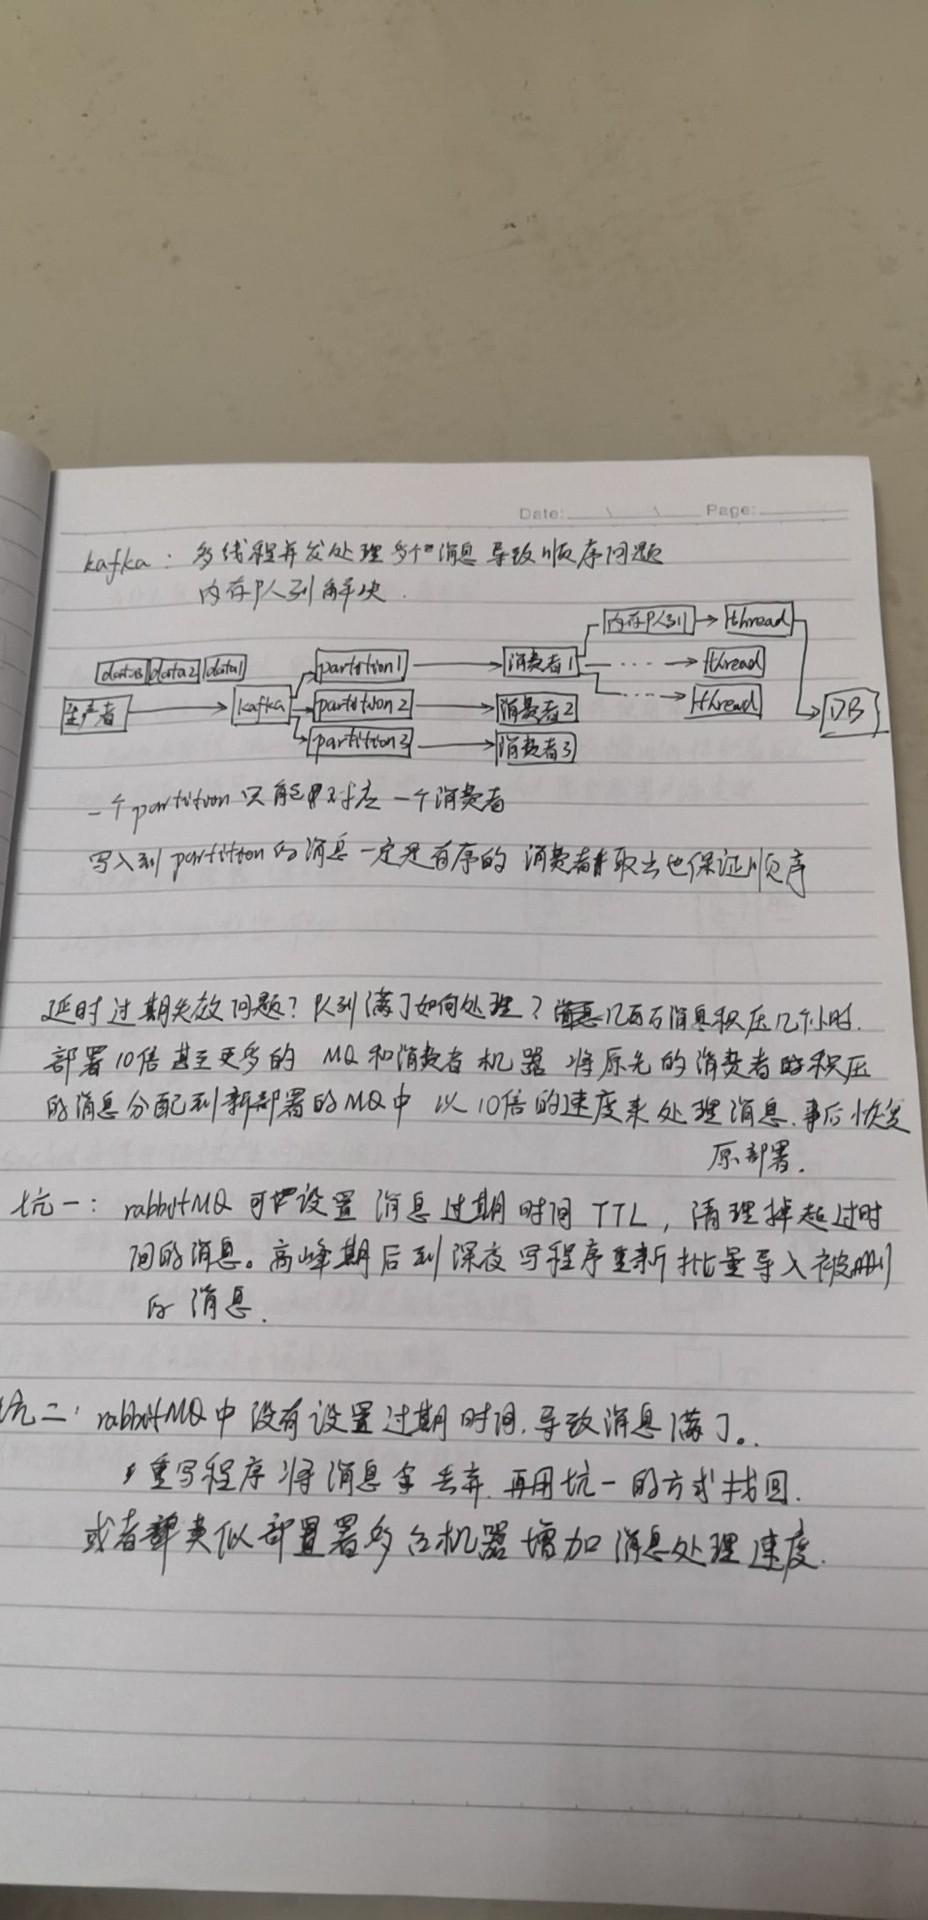 Date: Page:
kafka: 多线程并发处理多个消息导致顺序问题
内存队列解决.
内存队列 thread
data3 data2 data1 partition1 消费者1 thread
生产者 kafka partition2 消费者2 thread DB
partition3 消费者3
一个partition只能对应一个消费者
写入到partition的消息一定是有序的 消费者取出也保证顺序
延时过期失效问题? 队列满了如何处理? 几百万消息积压几个小时.
部署10倍甚至更多的 MQ和消费者机器 将原先的消费者的积压
的消息分配到新部署的MQ中 以10倍的速度来处理消息.事后恢复
原部署.
坑一: rabbitMQ可设置 消息过期时间TTL,清理掉超过时
间的消息。高峰期后到深夜写程序重新批量导入被删
的消息.
坑二: rabbitMQ中没有设置过期时间.导致消息满了。
重写程序将消息拿丢弃.再用坑一的方式找回.
或者类似部署多台机器增加消息处理速度.